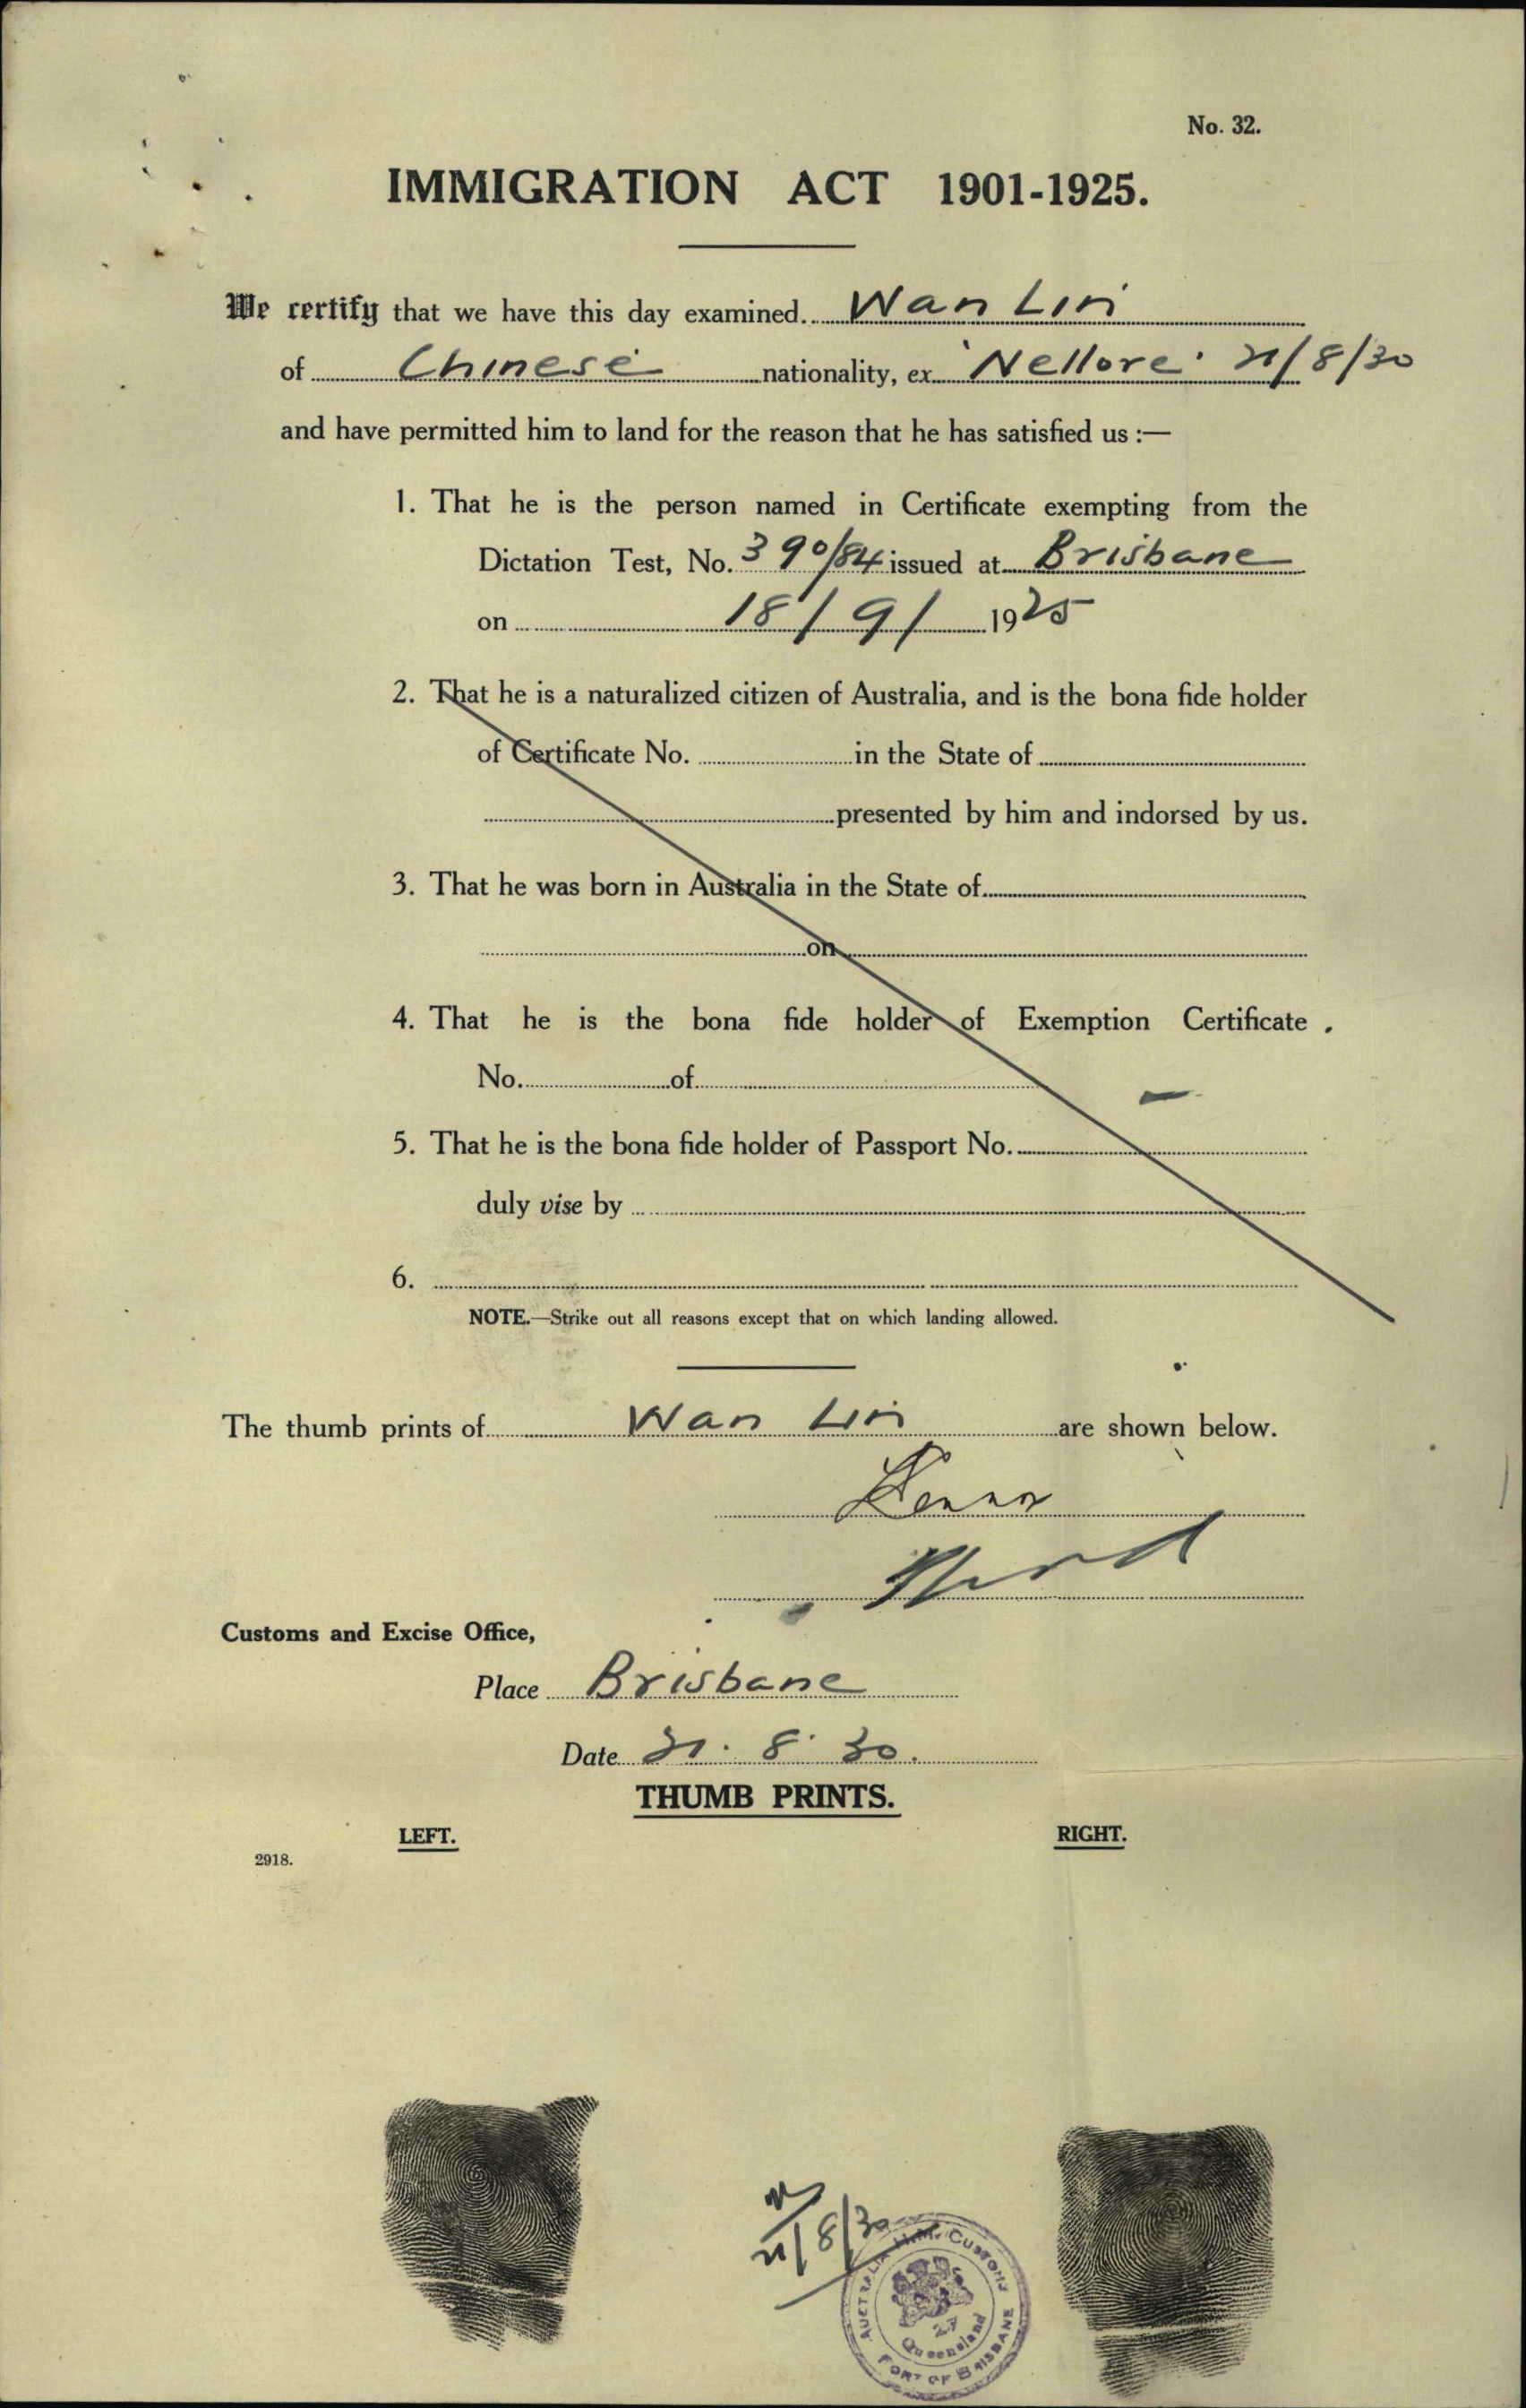 No. 32.
IMMIGRATION ACT 1901-1925.
We certify that we have this day examined Wan Lin
of Chinese nationality, ex 'Nellore' 21/8/30
and have permitted him to land for the reason that he has satisfied us :—
1. That he is the person named in Certificate exempting from the
Dictation Test, No. 390/84 issued at Brisbane
on 18/9/1925
2. That he is a naturalized citizen of Australia, and is the bona fide holder
of Certificate No. in the State of
presented by him and indorsed by us.
3. That he was born in Australia in the State of
on
4. That he is the bona fide holder of Exemption Certificate.
No. of
5. That he is the bona fide holder of Passport No.
duly vise by
6.
NOTE.—Strike out all reasons except that on which landing allowed.
The thumb prints of Wan Lin are shown below.
Customs and Excise Office,
Place Brisbane
Date 21. 8. 30.
THUMB PRINTS.
LEFT. RIGHT.
2918.
21/8/30
H.M. CUSTOMS
AUSTRALIA
27
Queensland
PORT OF BRISBANE